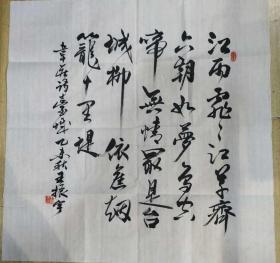 江雨霏〻江草齊
六朝如夢鳥空
啼無情最是台
城柳依舊烟
籠十里堤
韋莊詩臺城乙未秋王振